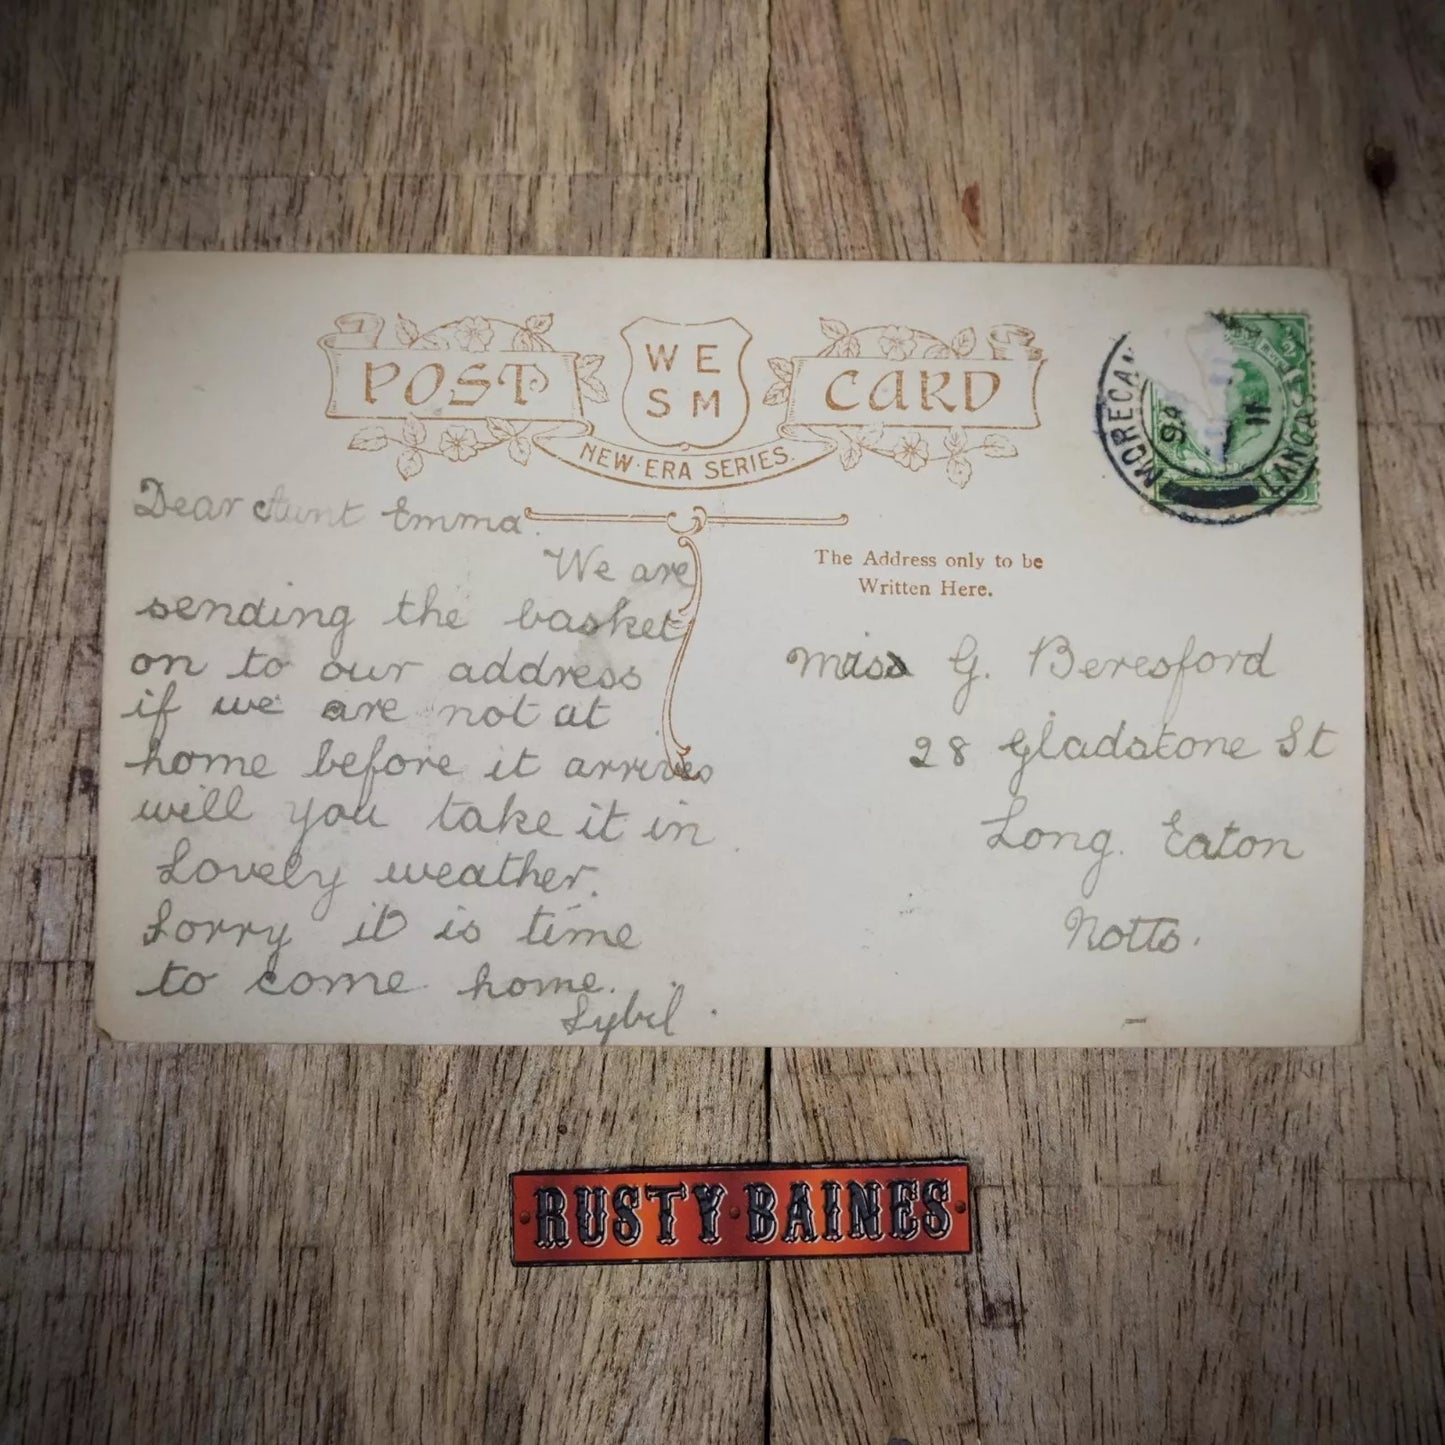 POST CARD
W E
S M
NEW·ERA SERIES.
MORECAM
LANCASTER
11
Dear Aunt Emma.
We are
sending the basket
on to our address
if we are not at
home before it arrives
will you take it in
Lovely weather.
Sorry it is time
to come home.
Sybil.
The Address only to be
Written Here.
Miss G. Beresford
28 Gladstone St
Long. Eaton
Notts.
RUSTY·BAINES